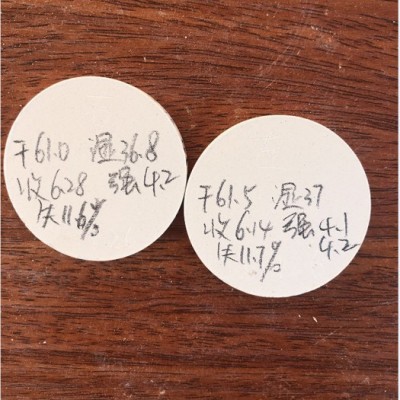 干61.0 湿36.8
收6.28 强4.2
失11.6%
干61.5 湿37
收6.14 强4.1
失11.7% 4.2